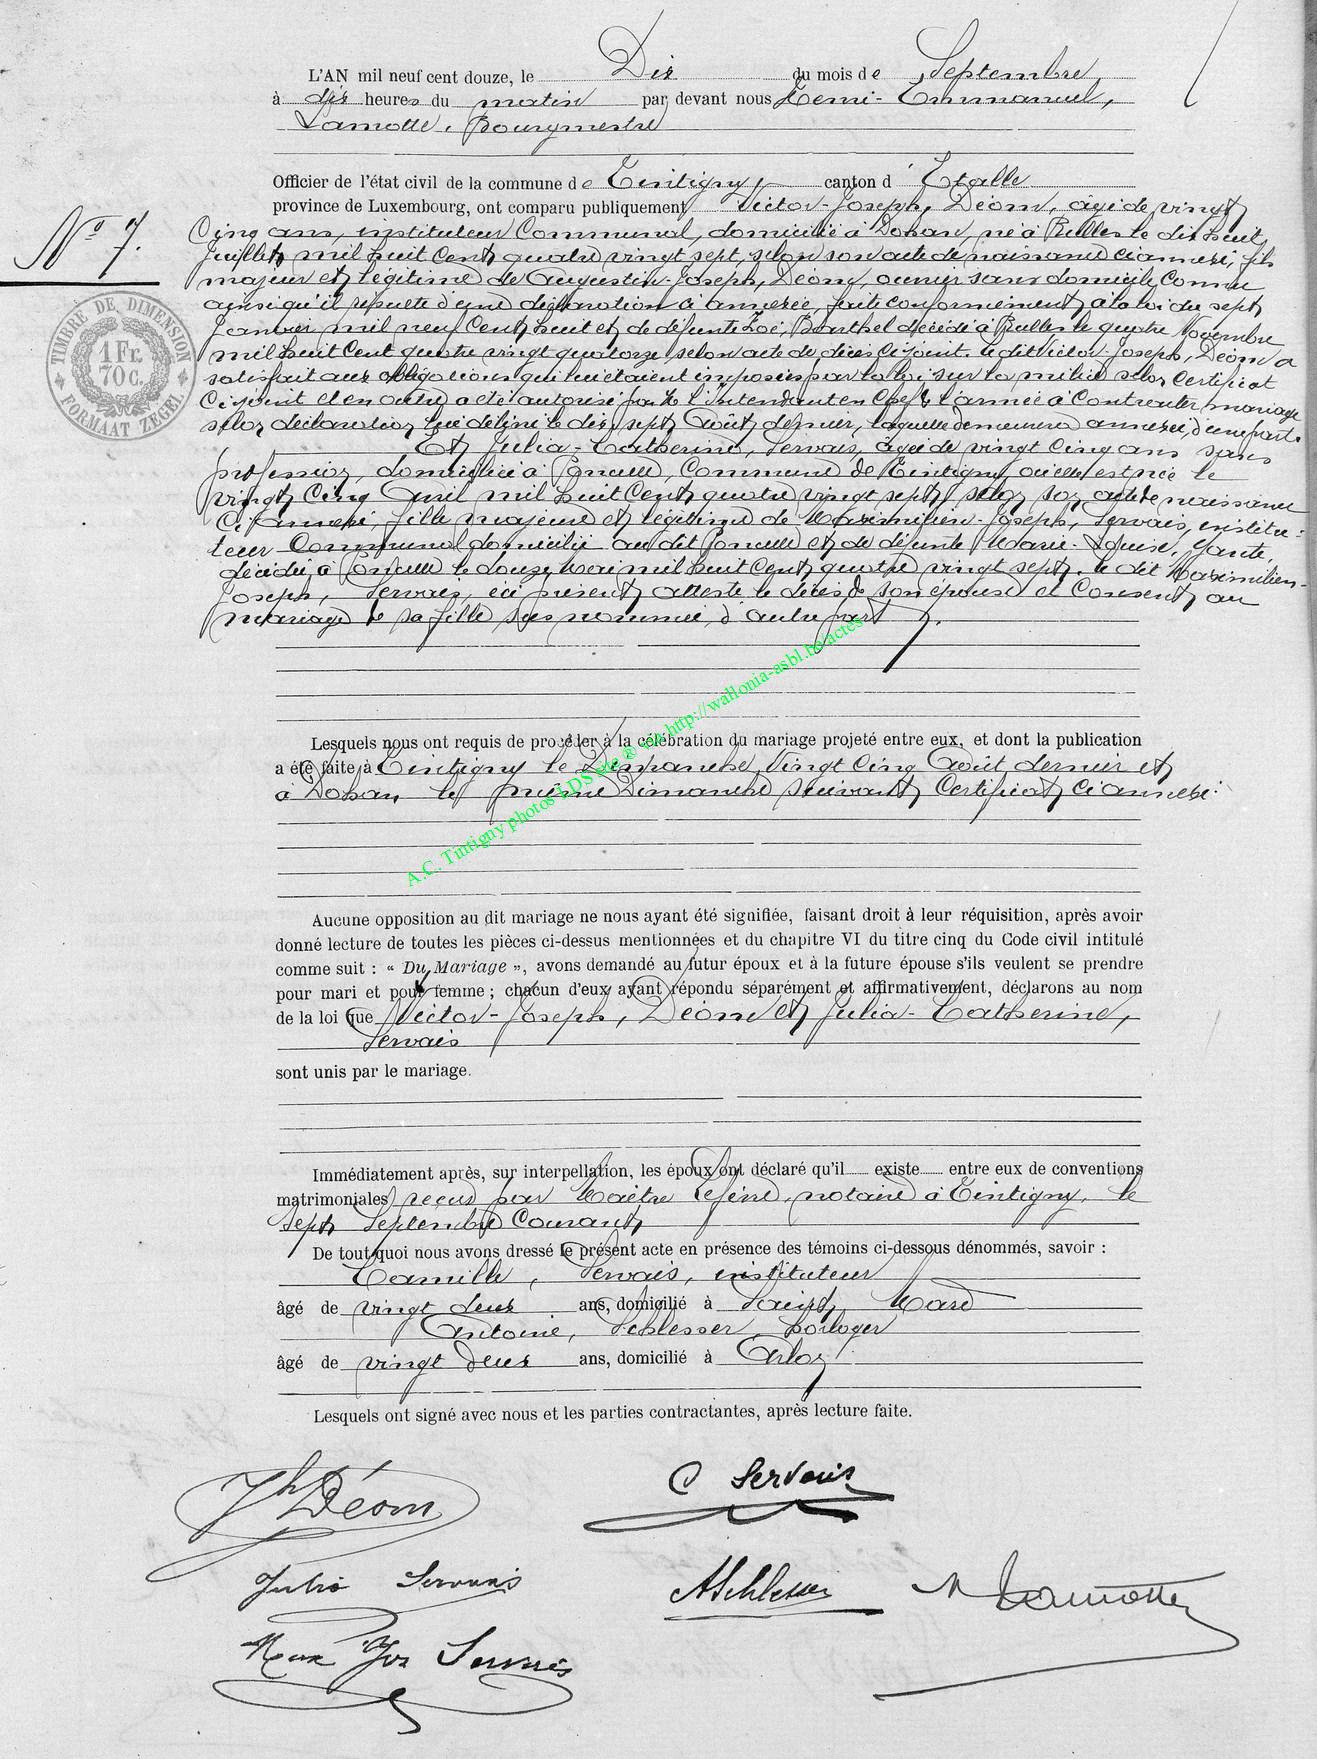 L'AN mil neuf cent douze, le Dix du mois de Septembre
à dix heures du matin par devant nous Henri-Emmanuel,
Lamotte, Bourgmestre
Officier de l'état civil de la commune de Tintigny, canton d'Etalle
province de Luxembourg, ont comparu publiquement Victor-Joseph, Déom, âgé de vingt
N° 7.
Cinq ans, instituteur Communal, domicilié à Dohan, né à Rulles le dix huit
Juillet mil huit Cent quatre vingt sept, selon son acte de naissance ci annexé, fils
majeur et légitime de Augustin-Joseph, Déom, ouvrier sans domicile Connu
ainsi qu'il résulte d'une déclaration ci annexée, faite conformément à la loi du sept
Janvier mil neuf Cent huit et de défunte Zoé, Barthel décédée à Rulles le quatre Novembre
mil huit Cent quatre vingt quatorze selon acte de décès ci joint. Le dit Victor-Joseph, Déom a
satisfait aux obligations qui lui étaient imposées par la loi sur la milice selon Certificat
Ci joint et en outre a été autorisé par l'Intendant en Chef de l'armée à Contracter mariage
selon déclaration lui délivré le dix sept Août dernier, laquelle demeurera annexée, d'une part.
Et Julia-Catherine, Servais, âgée de vingt cinq ans sans
profession, domiciliée à Poncelle, Commune de Tintigny où elle est née le
vingt Cinq Avril mil huit Cent quatre vingt sept, selon son acte de naissance
Ci annexé, fille majeure et légitime de Maximilien-Joseph, Servais, institu=
teur Communal domicilié au dit Poncelle et de défunte Marie-Louise,
décédée à Poncelle le douze Mai mil huit Cent quatre vingt sept. Le dit Maximilien-
Joseph, Servais, ici présent atteste le décès de son épouse et Consent au
mariage de sa fille sus nommée, d'autre part.
Lesquels nous ont requis de procéder à la célébration du mariage projeté entre eux, et dont la publication
a été faite à Tintigny le Dimanche Vingt Cinq Août dernier et
à Dohan le même Dimanche suivant Certificat Ci annexé.
Aucune opposition au dit mariage ne nous ayant été signifiée, faisant droit à leur réquisition, après avoir
donné lecture de toutes les pièces ci-dessus mentionnées et du chapitre VI du titre cinq du Code civil intitulé
comme suit : « Du Mariage », avons demandé au futur époux et à la future épouse s'ils veulent se prendre
pour mari et pour femme ; chacun d'eux ayant répondu séparément et affirmativement, déclarons au nom
de la loi que Victor-Joseph, Déom et Julia-Catherine,
Servais
sont unis par le mariage.
Immédiatement après, sur interpellation, les époux ont déclaré qu'il existe entre eux de conventions
matrimoniales reçus par Maître Lefèvre, notaire à Tintigny, le
sept Septembre Courant
De tout quoi nous avons dressé le présent acte en présence des témoins ci-dessous dénommés, savoir :
Camille, Servais, instituteur
âgé de vingt deux ans, domicilié à Saint Mard
Antoine, Schlesser horloger
âgé de vingt deux ans, domicilié à Arlon
Lesquels ont signé avec nous et les parties contractantes, après lecture faite.
Jh Déom
C Servais
Julia Servais
ASchlesser
Lamotte
Max Jos Servais
TIMBRE DE DIMENSION
1 Fr.
70 C.
FORMAAT ZEGEL
A.C. Tintigny photos LDS via http://wallonia-asbl.be/actes